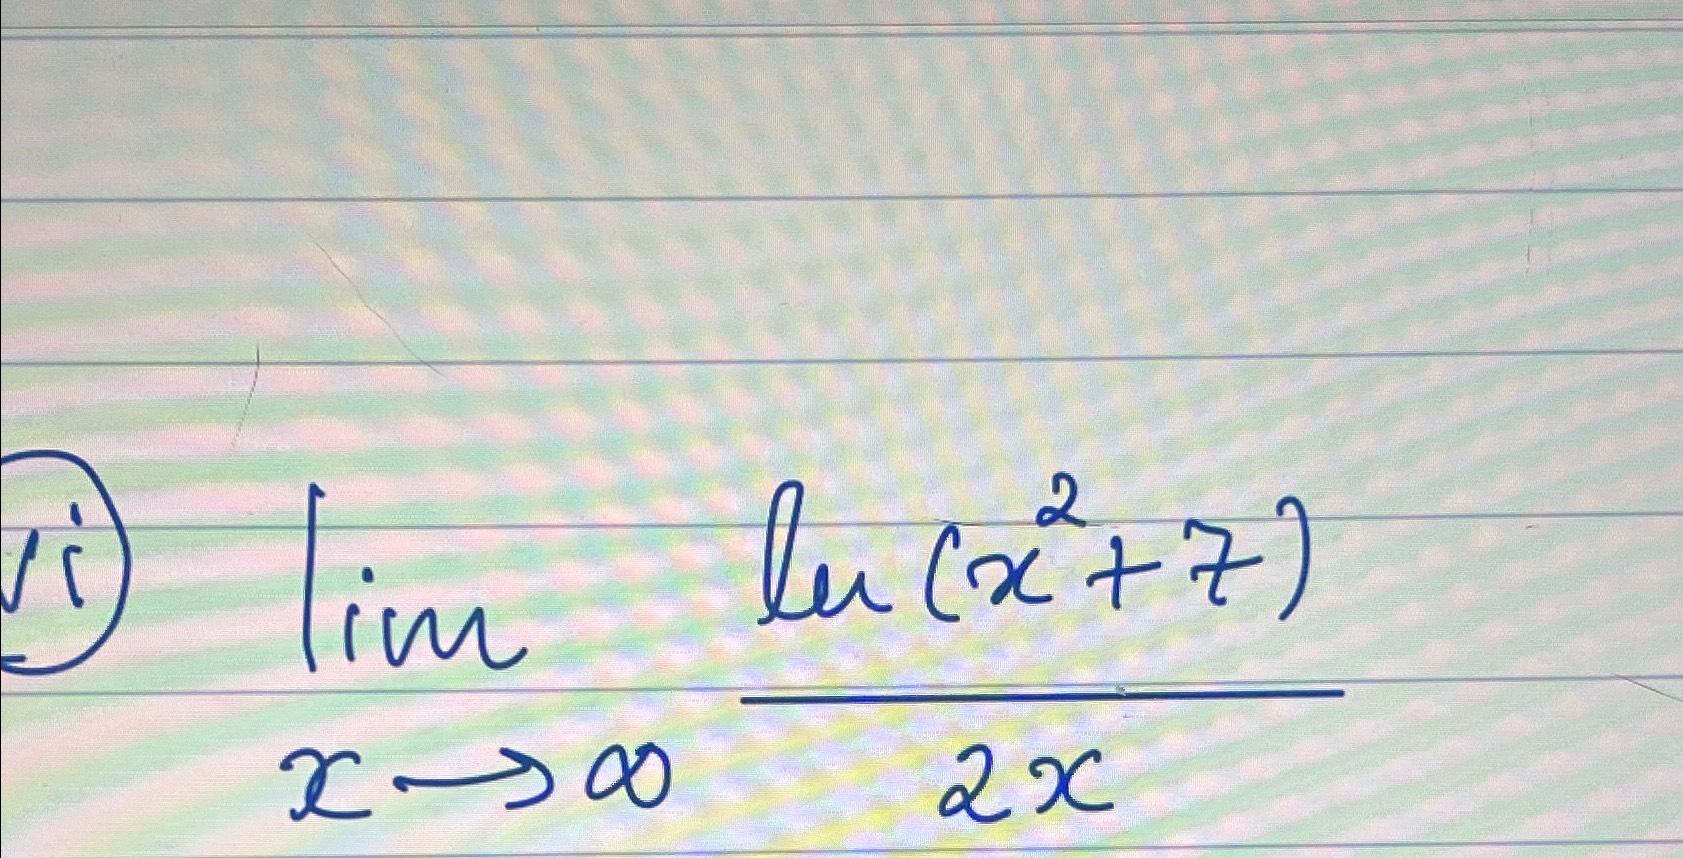 vi) lim ln(x²+7)
x→∞ 2x